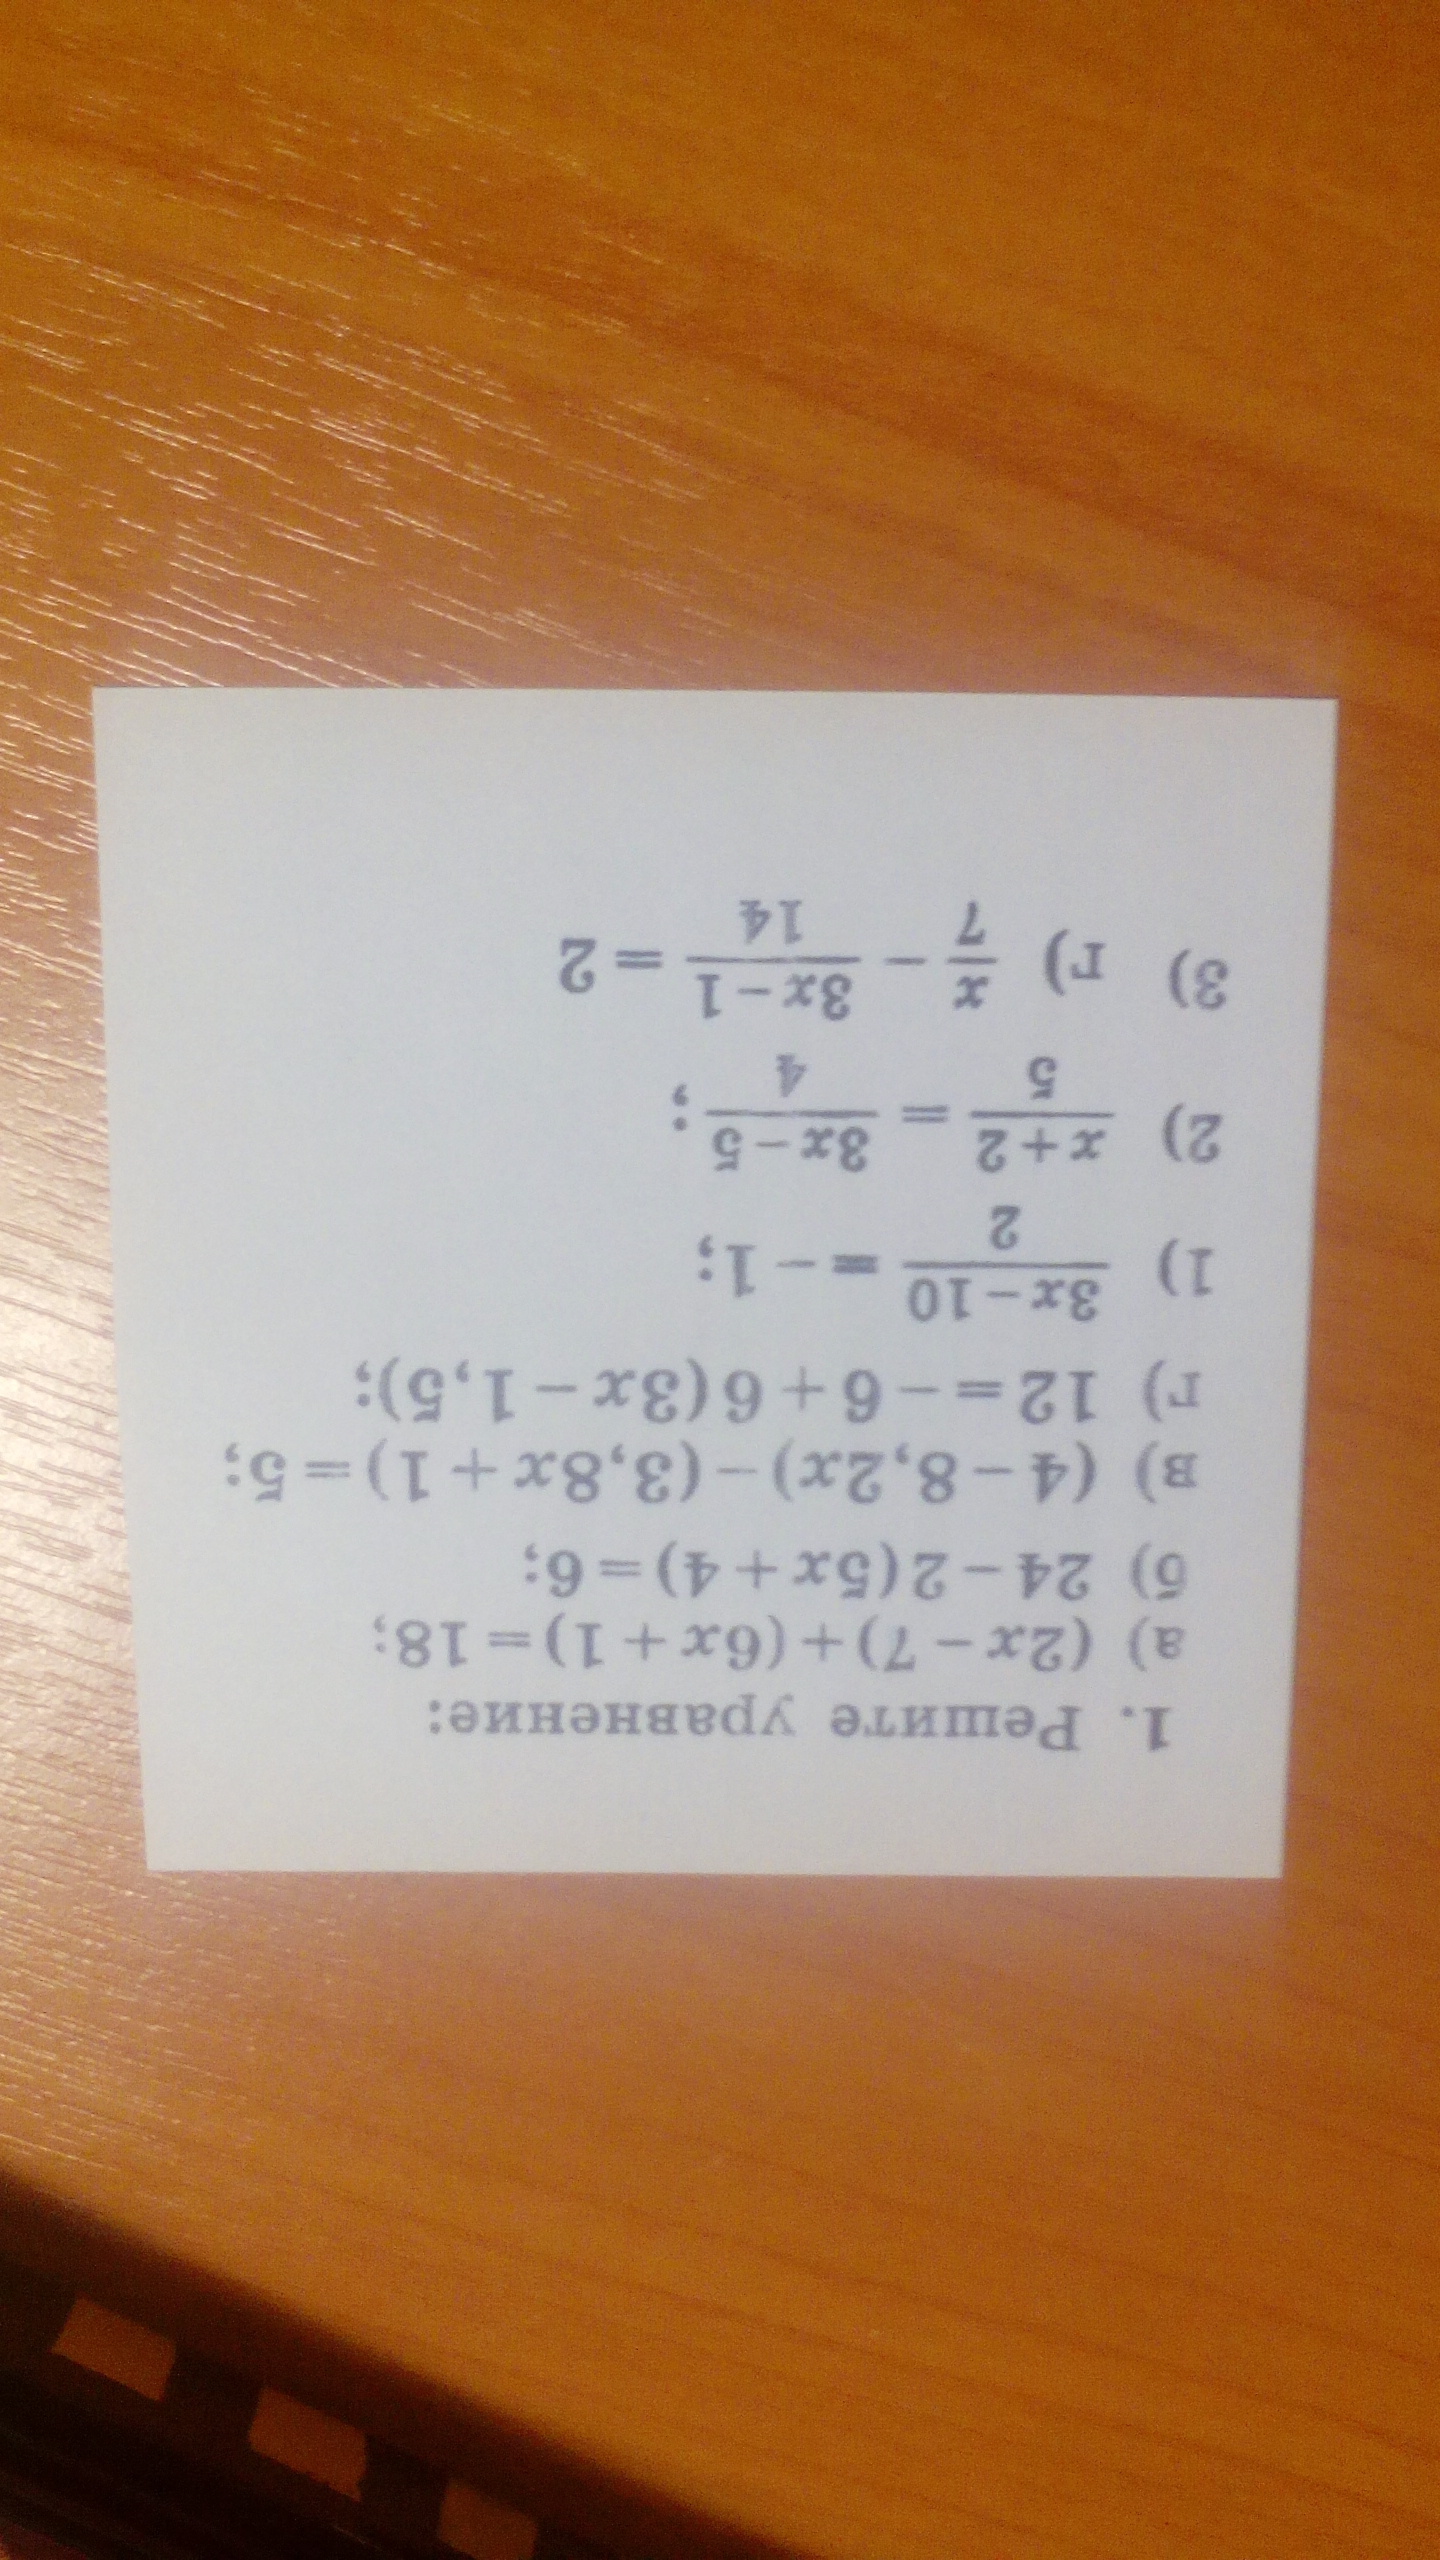 1. Решите уравнение:
а) (2x − 7) + (6x + 1) = 18;
б) 24 − 2(5x + 4) = 6;
в) (4 − 8,2x) − (3,8x + 1) = 5;
г) 12 = − 6 + 6(3x − 1,5);
1) \frac{3x − 10}{2} = − 1;
2) \frac{x + 2}{5} = \frac{3x − 5}{4};
3) г) \frac{x}{7} − \frac{3x − 1}{14} = 2